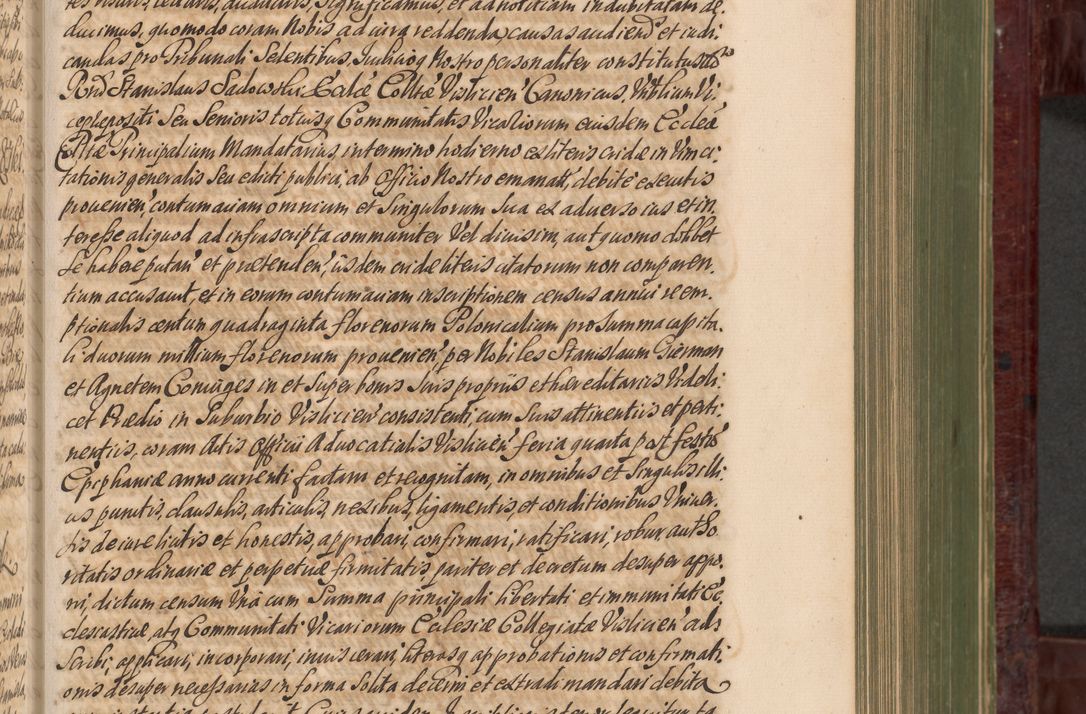 ducimus, quomodo coram Nobis ad iura reddenda, causas audiend et iudi:
candas pro Tribunali Sedentibus, Iudicioq Nostro personaliter constitutus
Rnd Stanislaus Sadowski Eccłæ Collae Vislicien Canonicus, Vblium Vi:
cepræpositi Seu Senioris totiusq Communitatis Vicariorum eiusdem Ecclæ
Collæ Principalium Mandatarius, in termino hodierno ex literis cridæ in Vim ci:
tationis generalis Seu edicti publici, ab Officio Nostro emanatt, debite executis
prouenien, contumaciam omnium et Singulorum Sua ex aduerso ius et in:
teresse aliquod ad infrascripta communiter Vel diuisim, aut quomodolibet
Se habere putan et prætenden, iisdem cridæ literis citatorum non comparen:
tium accusauit, et in eorum contumaciam inscriptionem census annui reem:
ptionalis centum quadraginta florenorum Polonicalium pro Summa capita:
li duorum millium florenorum prouenien per Nobiles Stanislaum Gierman
et Agnetem Coniuges in et Super bonis Suis propriis et hereditariis Videli:
cet Prædio in Suburbio Vislicien consistenti, cum Suis attinentiis et perti:
nentiis, coram Actis Officii Aduocatialis Vislicien feria quarta post festū
Epiphaniæ anno currenti factam et recognitam, in omnibus et Singulis illi:
us punctis, clausulis, articulis, nexibus, ligamentis, et conditionibus Vniuer:
sis de iure licitis et honestis, approbari, confirmari, ratificari, robur autho:
ritatis ordinariæ et perpetuæ firmitatis, pariter et decretum desuper appo:
ni, dictum censum Vnà cum Summa principali libertati et immunitati Ec:
clesiasticæ, atq Communitati Vicariorum Ecclesiæ Collegiatæ Vislicien ads:
Scribi, applicari, incorporari, inuiscerari, literasq approbationis et confirmati:
onis desuper necessarias in forma Solita decerni et extradi mandari debita